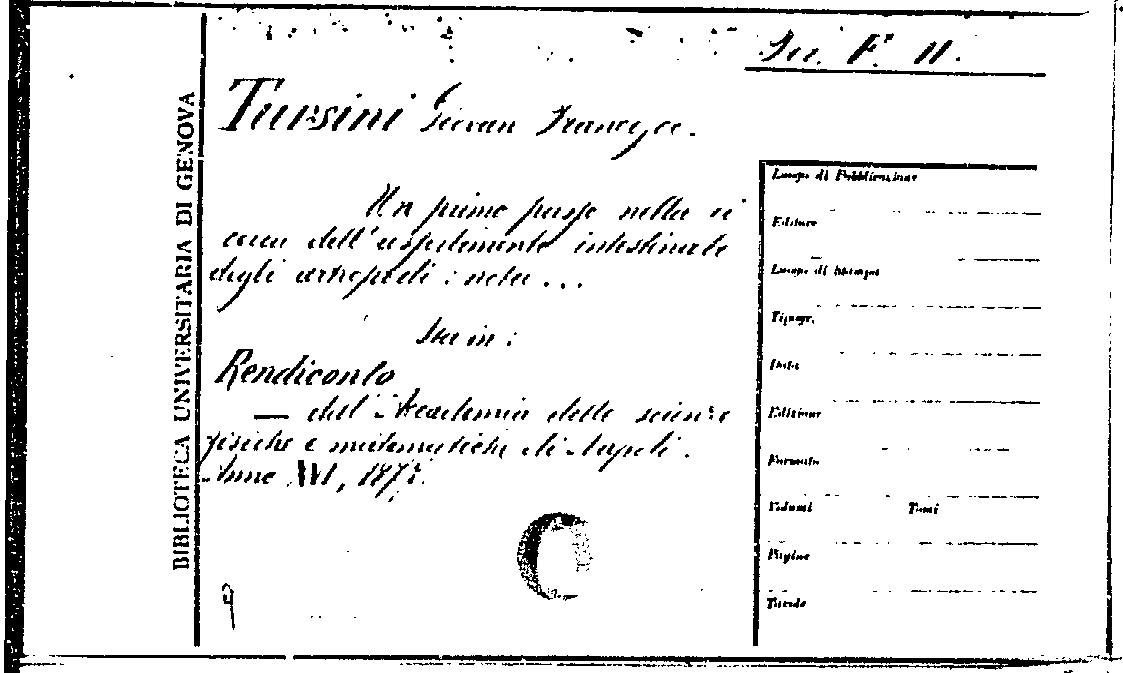 BIBLIOTECA UNIVERSITARIA DI GENOVA
F. 11.
Tursini Giovan Francesco.
Un primo passo nella ri
cerca dell'assorbimento intestinale
degli artropodi: nota...
Sta in:
Rendiconto
— dell'Accademia delle scienze
fisiche e matematiche di Napoli.
Anno XVI,
Luogo di Pubblicazione
Editore
Luogo di Stampa
Tipogr.
Data
Edizione
Formato
Volumi Tomi
Pagine
Tavole
9